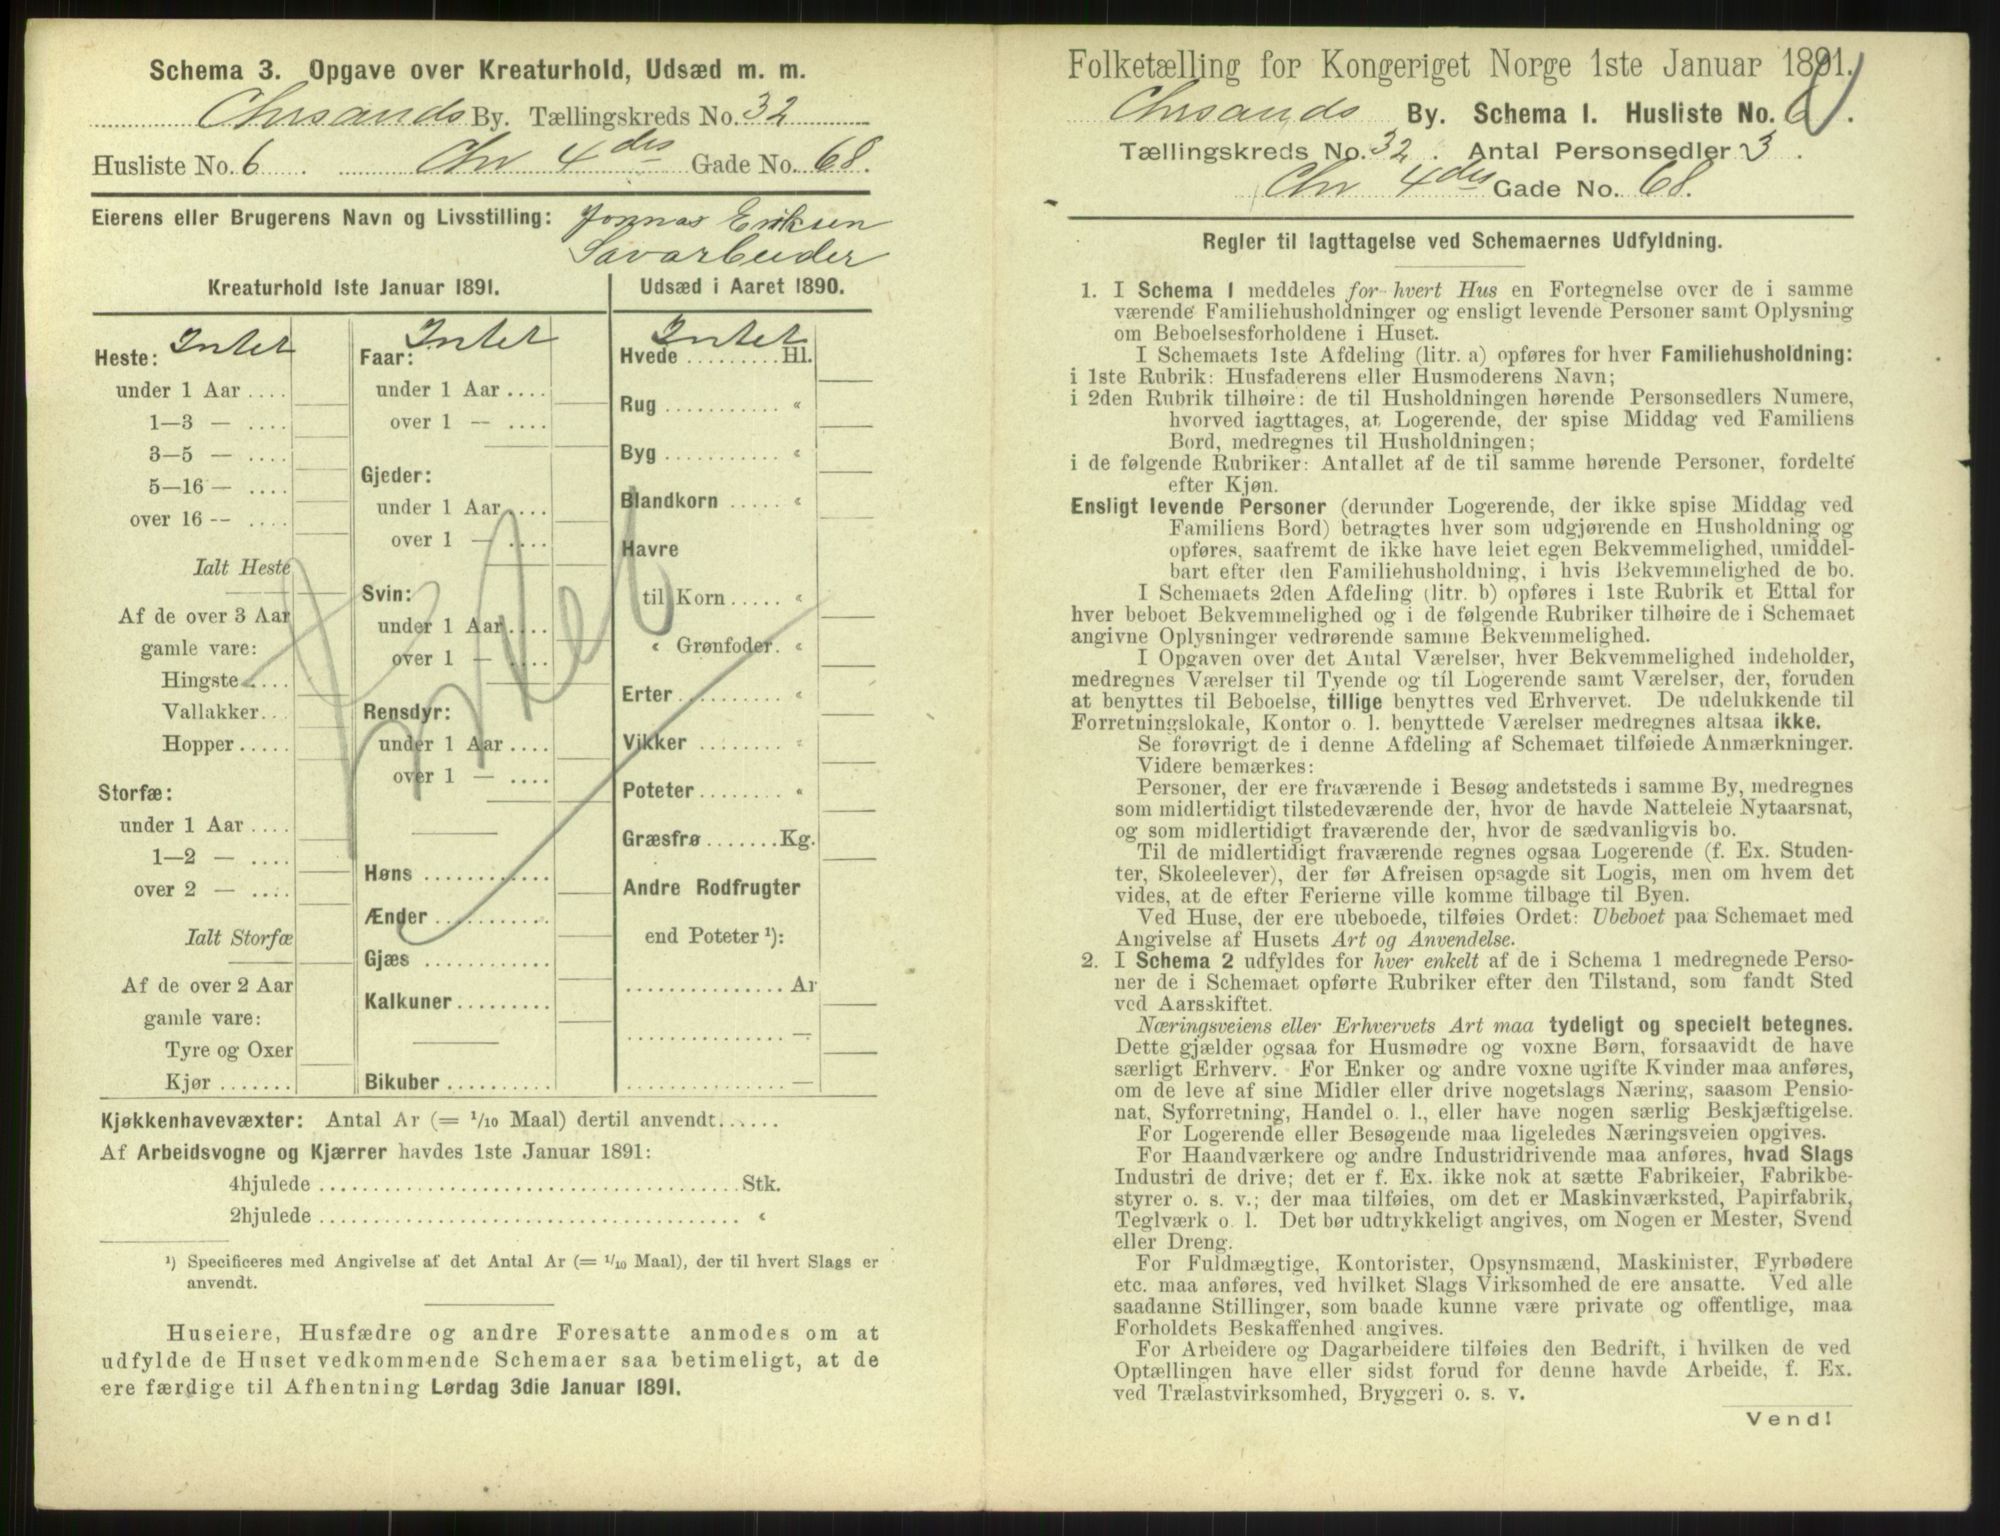 Schema 3. Opgave over Kreaturhold, Udsæd m. m.
Chrsands By. Tællingskreds No. 32
Husliste No. 6 . Chr 4des Gade No. 68.
Eierens eller Brugerens Navn og Livsstilling: Jonnas Eriksen
Savarbeider
Kreaturhold 1ste Januar 1891.
Heste: Intet
under 1 Aar ....
1—3 — ....
3—5 — ....
5—16 — ....
over 16 -- ....
Ialt Heste
Af de over 3 Aar
gamle vare:
Hingste....
Vallakker...
Hopper.....
Storfæ:
under 1 Aar ....
1—2 — ....
over 2 — ....
Ialt Storfæ
Af de over 2 Aar
gamle vare:
Tyre og Oxer
Kjør.......
Faar: Intet
under 1 Aar ....
over 1 — ....
Gjeder:
under 1 Aar ....
over 1 — ....
Svin:
under 1 Aar....
over 1 — ....
Rensdyr:
under 1 Aar ....
over 1 — ....
Høns ............
Ænder ...........
Gjæs ............
Kalkuner.........
Bikuber..........
Udsæd i Aaret 1890.
Intet
Hvede .........Hl.
Rug ........... "
Byg ........... "
Blandkorn ..... "
Havre
til Korn..... "
" Grønfoder. "
Erter ......... "
Vikker ........ "
Poteter........ "
Græsfrø.......Kg.
Andre Rodfrugter
end Poteter ¹):
...............Ar
............... —
............... —
Intet
Kjøkkenhavevæxter: Antal Ar (= 1/10 Maal) dertil anvendt......
Af Arbeidsvogne og Kjærrer havdes 1ste Januar 1891:
4hjulede ........................................Stk.
2hjulede ........................................ "
¹) Specificeres med Angivelse af det Antal Ar (= 1/10 Maal), der til hvert Slags er
anvendt.
Huseiere, Husfædre og andre Foresatte anmodes om at
udfylde de Huset vedkommende Schemaer saa betimeligt, at de
ere færdige til Afhentning Lørdag 3die Januar 1891.
Folketælling for Kongeriget Norge 1ste Januar 1891.
Chrsands By. Schema I. Husliste No. 6 .
Tællingskreds No. 32 . Antal Personsedler 3 .
Chr 4des Gade No. 68.
Regler til Iagttagelse ved Schemaernes Udfyldning.
1. I Schema I meddeles for hvert Hus en Fortegnelse over de i samme
værende Familiehusholdninger og ensligt levende Personer samt Oplysning
om Beboelsesforholdene i Huset.
I Schemaets 1ste Afdeling (litr. a) opføres for hver Familiehusholdning:
i 1ste Rubrik: Husfaderens eller Husmoderens Navn;
i 2den Rubrik tilhøire: de til Husholdningen hørende Personsedlers Numere,
hvorved iagttages, at Logerende, der spise Middag ved Familiens
Bord, medregnes til Husholdningen;
i de følgende Rubriker: Antallet af de til samme hørende Personer, fordelte
efter Kjøn.
Ensligt levende Personer (derunder Logerende, der ikke spise Middag ved
Familiens Bord) betragtes hver som udgjørende en Husholdning og
opføres, saafremt de ikke have leiet egen Bekvemmelighed, umiddel-
bart efter den Familiehusholdning, i hvis Bekvemmelighed de bo.
I Schemaets 2den Afdeling (litr. b) opføres i 1ste Rubrik et Ettal for
hver beboet Bekvemmelighed og i de følgende Rubriker tilhøire de i Schemaet
angivne Oplysninger vedrørende samme Bekvemmelighed.
I Opgaven over det Antal Værelser, hver Bekvemmelighed indeholder,
medregnes Værelser til Tyende og til Logerende samt Værelser, der, foruden
at benyttes til Beboelse, tillige benyttes ved Erhvervet. De udelukkende til
Forretningslokale, Kontor o. l. benyttede Værelser medregnes altsaa ikke.
Se forøvrigt de i denne Afdeling af Schemaet tilføiede Anmærkninger.
Videre bemærkes:
Personer, der ere fraværende i Besøg andetsteds i samme By, medregnes
som midlertidigt tilstedeværende der, hvor de havde Natteleie Nytaarsnat,
og som midlertidigt fraværende der, hvor de sædvanligvis bo.
Til de midlertidigt fraværende regnes ogsaa Logerende (f. Ex. Studen-
ter, Skoleelever), der før Afreisen opsagde sit Logis, men om hvem det
vides, at de efter Ferierne ville komme tilbage til Byen.
Ved Huse, der ere ubeboede, tilføies Ordet: Ubeboet paa Schemaet med
Angivelse af Husets Art og Anvendelse.
2. I Schema 2 udfyldes for hver enkelt af de i Schema 1 medregnede Perso-
ner de i Schemaet opførte Rubriker efter den Tilstand, som fandt Sted
ved Aarsskiftet.
Næringsveiens eller Erhvervets Art maa tydeligt og specielt betegnes.
Dette gjælder ogsaa for Husmødre og voxne Børn, forsaavidt de have
særligt Erhverv. For Enker og andre voxne ugifte Kvinder maa anføres,
om de leve af sine Midler eller drive nogetslags Næring, saasom Pensio-
nat, Syforretning, Handel o. l., eller have nogen særlig Beskjæftigelse.
For Logerende eller Besøgende maa ligeledes Næringsveien opgives.
For Haandværkere og andre Industridrivende maa anføres, hvad Slags
Industri de drive; det er f. Ex. ikke nok at sætte Fabrikeier, Fabrikbe-
styrer o. s. v.; der maa tilføies, om det er Maskinværksted, Papirfabrik,
Teglværk o. l. Det bør udtrykkeligt angives, om Nogen er Mester, Svend
eller Dreng.
For Fuldmægtige, Kontorister, Opsynsmænd, Maskinister, Fyrbødere
etc. maa anføres, ved hvilket Slags Virksomhed de ere ansatte. Ved alle
saadanne Stillinger, som baade kunne være private og offentlige, maa
Forholdets Beskaffenhed angives.
For Arbeidere og Dagarbeidere tilføies den Bedrift, i hvilken de ved
Optællingen have eller sidst forud for denne havde Arbeide, f. Ex.
ved Trælastvirksomhed, Bryggeri o. s. v.
Vend!